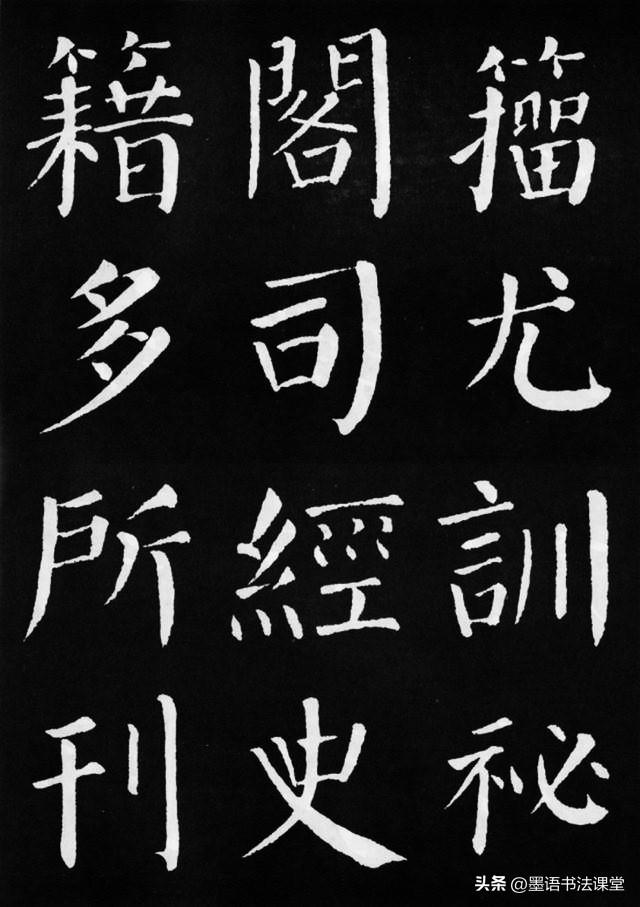 籀尤訓祕
閣司經史
籍多所刊
头条 @墨语书法课堂